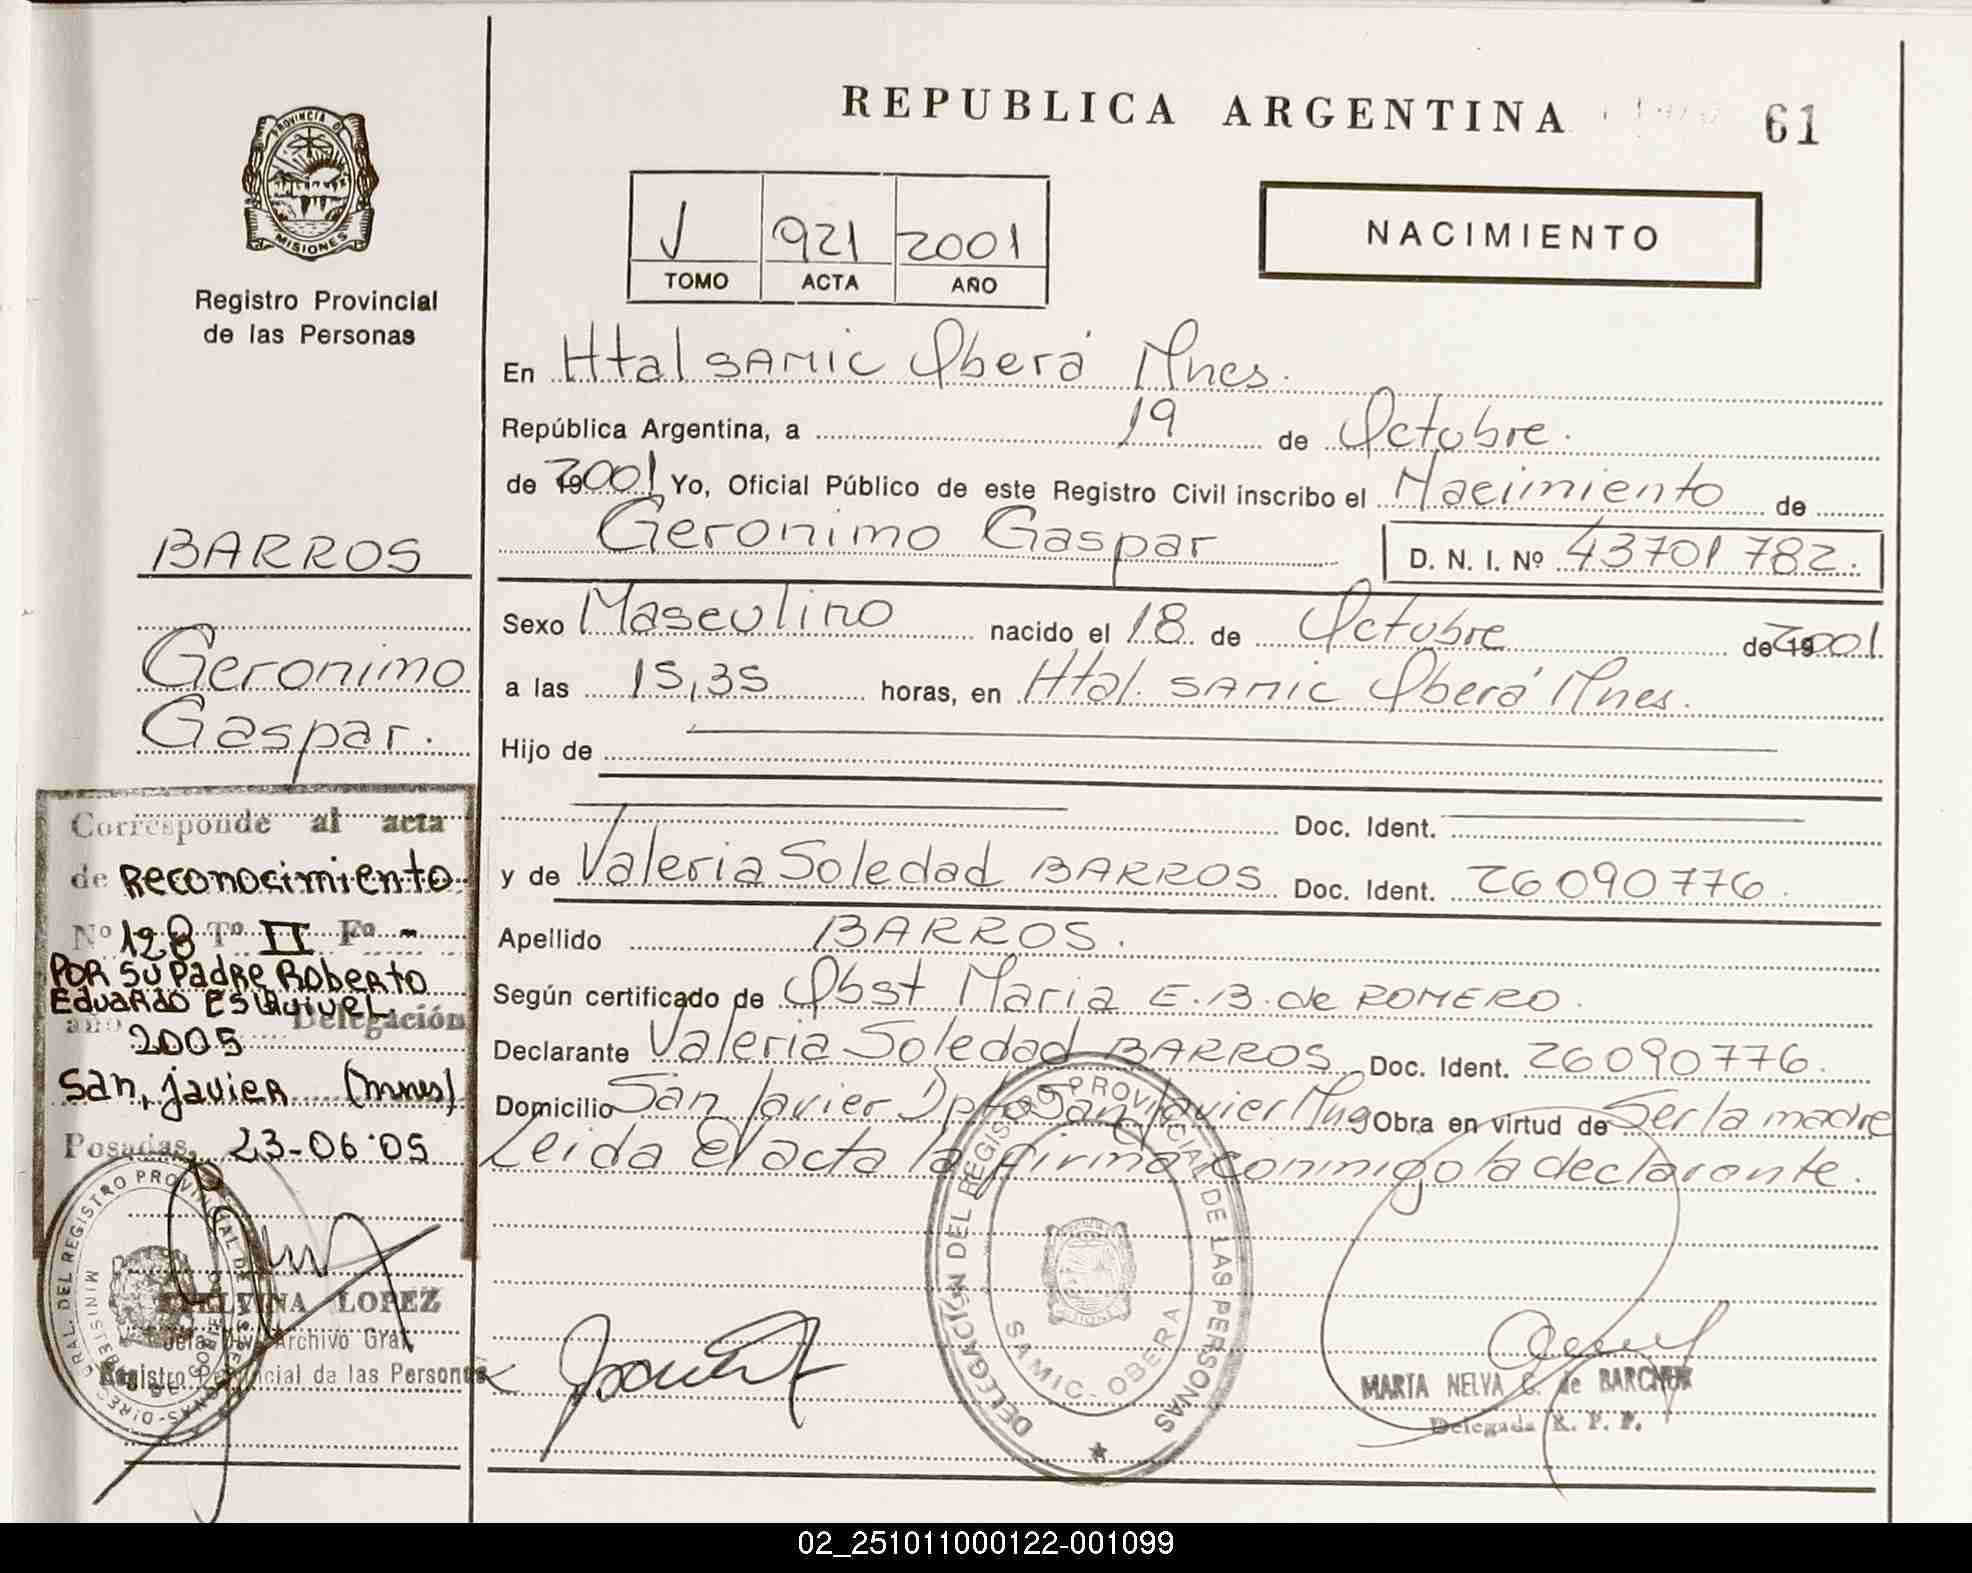 REPUBLICA ARGENTINA
61
PROVINCIA D
MISIONES
Registro Provincial
de las Personas
V 921 2001
TOMO ACTA AÑO
NACIMIENTO
En Htal SAMIC Oberá Mnes.
República Argentina, a 19 de Octubre.
de 19 2001 Yo, Oficial Público de este Registro Civil inscribo el Nacimiento de
Geronimo Gaspar D. N. I. Nº 43701782.
Sexo Masculino nacido el 18 de Octubre de 19 2001
a las 15,35 horas, en Htal. SAMIC Oberá Mnes.
Hijo de
Doc. Ident.
y de Valeria Soledad BARROS Doc. Ident. 26090776.
Apellido BARROS.
Según certificado de Obst Maria E.B. de ROMERO.
Declarante Valeria Soledad BARROS Doc. Ident. 26090776.
Domicilio San Javier Dpto San Javier Mns Obra en virtud de Ser la madre
Leida el acta la firma conmigo la declarante.
BARROS
Geronimo
Gaspar.
Corresponde al acta
de Reconocimiento
Nº 128 Tº II Fº -
POR SU Padre Roberto
Eduardo ESQUIVEL
año 2005 Delegación
San, Javier (mnes)
Posadas, 23-06-05
LOPEZ
Jefa Div. Archivo Gral.
Registro Provincial de las Personas
DELEGACIÓN DEL REGISTRO PROVINCIAL DE LAS PERSONAS
SAMIC - OBERA
MARTA NELVA G. de BARCHUK
Delegada R. P. P.
02_251011000122-001099